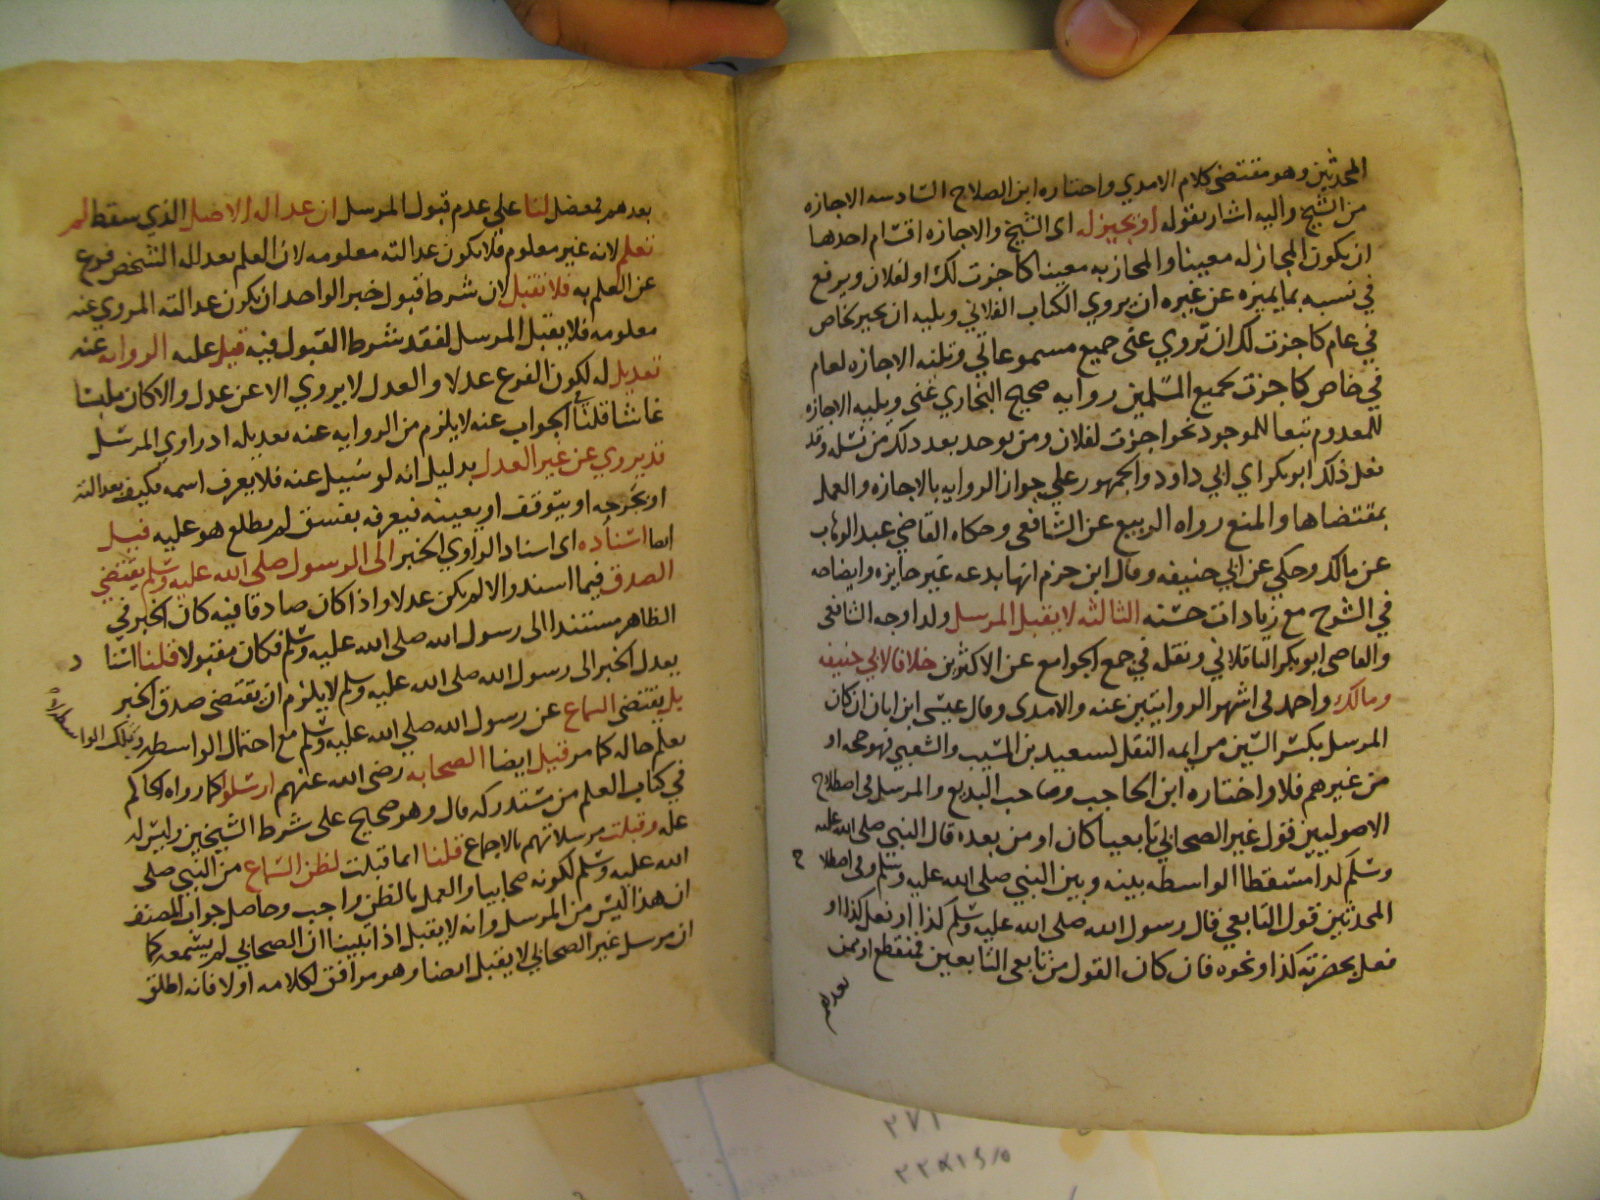 المحدثين وهو مقتضى كلام الامدي واختاره ابن الصلاح السادسه الاجازه
من الشيخ واليه اشار بقوله او يجيز له اى الشيخ والاجازه اقسام احدها
ان يكون المجاز له معينا والمجاز به معينا كاجزت لك او لفلان ويرفع
في نسبه بما يميزه عن غيره ان يروي الكتاب الفلاني ويليه ان يجيز بخاص
في عام كاجزت لك ان تروي عني جميع مسموعاتي وتليه الاجازه لعام
في خاص كاجزت لجميع المسلمين روايه صحيح البخاري عني ويليه الاجازه
للمعدوم تبعا للموجود نحو اجزت لفلان ومن يوجد بعد ذلك من نسله وقد
فعل ذلك ابو بكر اي ابي داود والجمهور علي جواز الروايه بالاجازه والعمل
بمقتضاها والمنع رواه الربيع عن الشافعى وحكاه القاضي عبد الوهاب
عن مالك وحكي عن ابي حنيفه وقال ابن حزم انها بدعه غير جايزه وايضاحه
في الشرح مع زيادات حسنه الثالثه لا يقبل المرسل ولدا وجه الشافعى
والقاضى ابو بكر الباقلاني ونقله في جمع الجوامع عن الاكثرين خلافا لابي حنيفه
ومالك واحمد فى اشهر الروايتين عنه والامدى وقال عيسى ابن ابان ان كان
المرسل بكسر السين من ايمه النقل لسعيد بن المسيب والشعبي فهو حجه او
من غيرهم فلا واختاره ابن الحاجب وصاحب البديع والمرسل فى اصطلاح
الاصوليين قول غير الصحابي تابعيا كان او من بعده قال النبي صلى الله عليه
وسلم لدا مسقطا الواسطه بينه وبين النبي صلى الله عليه وسلم وفى اصطلاح
المحدثين قول التابعي قال رسول الله صلى الله عليه وسلم كذا او فعل كذا او
فعل بحضرته كذا ونحوه فان كان القول من تابعى التابعين فمنقطع او ممن
بعدهم
بعدهم فمعضل لنا على عدم قبول المرسل ان عداله الاصل الذي سقط لم
تعلم لانه غير معلوم فلا تكون عدالته معلومه لان العلم بعداله الشخص فرع
عن العلم به فلا تقبل لان شرط قبول خبر الواحد ان يكون عدالته المروي عنه
معلومه فلا يقبل المرسل لفقد شرط القبول فيه قيل عليه الروايه عنه
تعديل له لكون الفرع عدلا والعدل لا يروي الا عن عدل والا كان ملبسا
غاشا قلنا في الجواب عنه لا يلزم من الروايه عنه تعديله اد راوي المرسل
قد يروي عن غير العدل بدليل انه لو سيل عنه فلا يعرف اسمه فكيف بعدالته
او يجرحه او يتوقف او يعينه فيعرفه بفسق لم يطلع هو عليه قيل
ايضا اسناده اى اسناد الراوي الخبر الى الرسول صلى الله عليه وسلم يقتضي
الصدق فيما اسند والا لم يكن عدلا واذا كان صادقا فيه كان الخبر في
الظاهر مستندا الى رسول الله صلى الله عليه وسلم فكان مقبولا قلنا اسناد
بعدل الخبر الى رسول الله صلى الله عليه وسلم لا يلزم ان يقتضى صدق الخبر
بل يقتضى السماع عن رسول الله صلي الله عليه وسلم مع احتمال الواسطه وتلك الواسطه لم
يعلم حاله كما مر قيل ايضا الصحابه رضى الله عنهم ارسلوا كما رواه الحاكم
في كتاب العلم من مستدركه قال وهو صحيح على شرط الشيخين وليس له
عله وقبلت مرسلاتهم بالاجماع قلنا انما قبلت لظن السماع من النبي صلى
الله عليه وسلم لكونه صحابيا والعمل بالظن واجب وحاصل جواب المصنف
ان هذا ليس من المرسل وانه لا يقبل اذا تبينا ان الصحابي لم يسمعه كما
ان مرسل غير الصحابي لا يقبل ايضا وهو موافق لكلامه اولا فانه اطلق
٢٧١